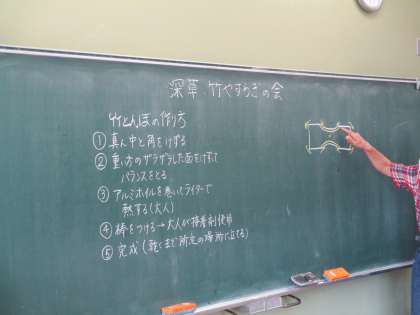 深草・竹やすらぎの会
竹とんぼの作り方
① 真ん中と角をけずる
② 重い方のザラザラした面をけずって
バランスをとる
③ アルミホイルを巻いてライターで
熱する(大人)
④ 棒をつける→大人が接着剤使用
⑤ 完成(乾くまで所定の場所に立てる)